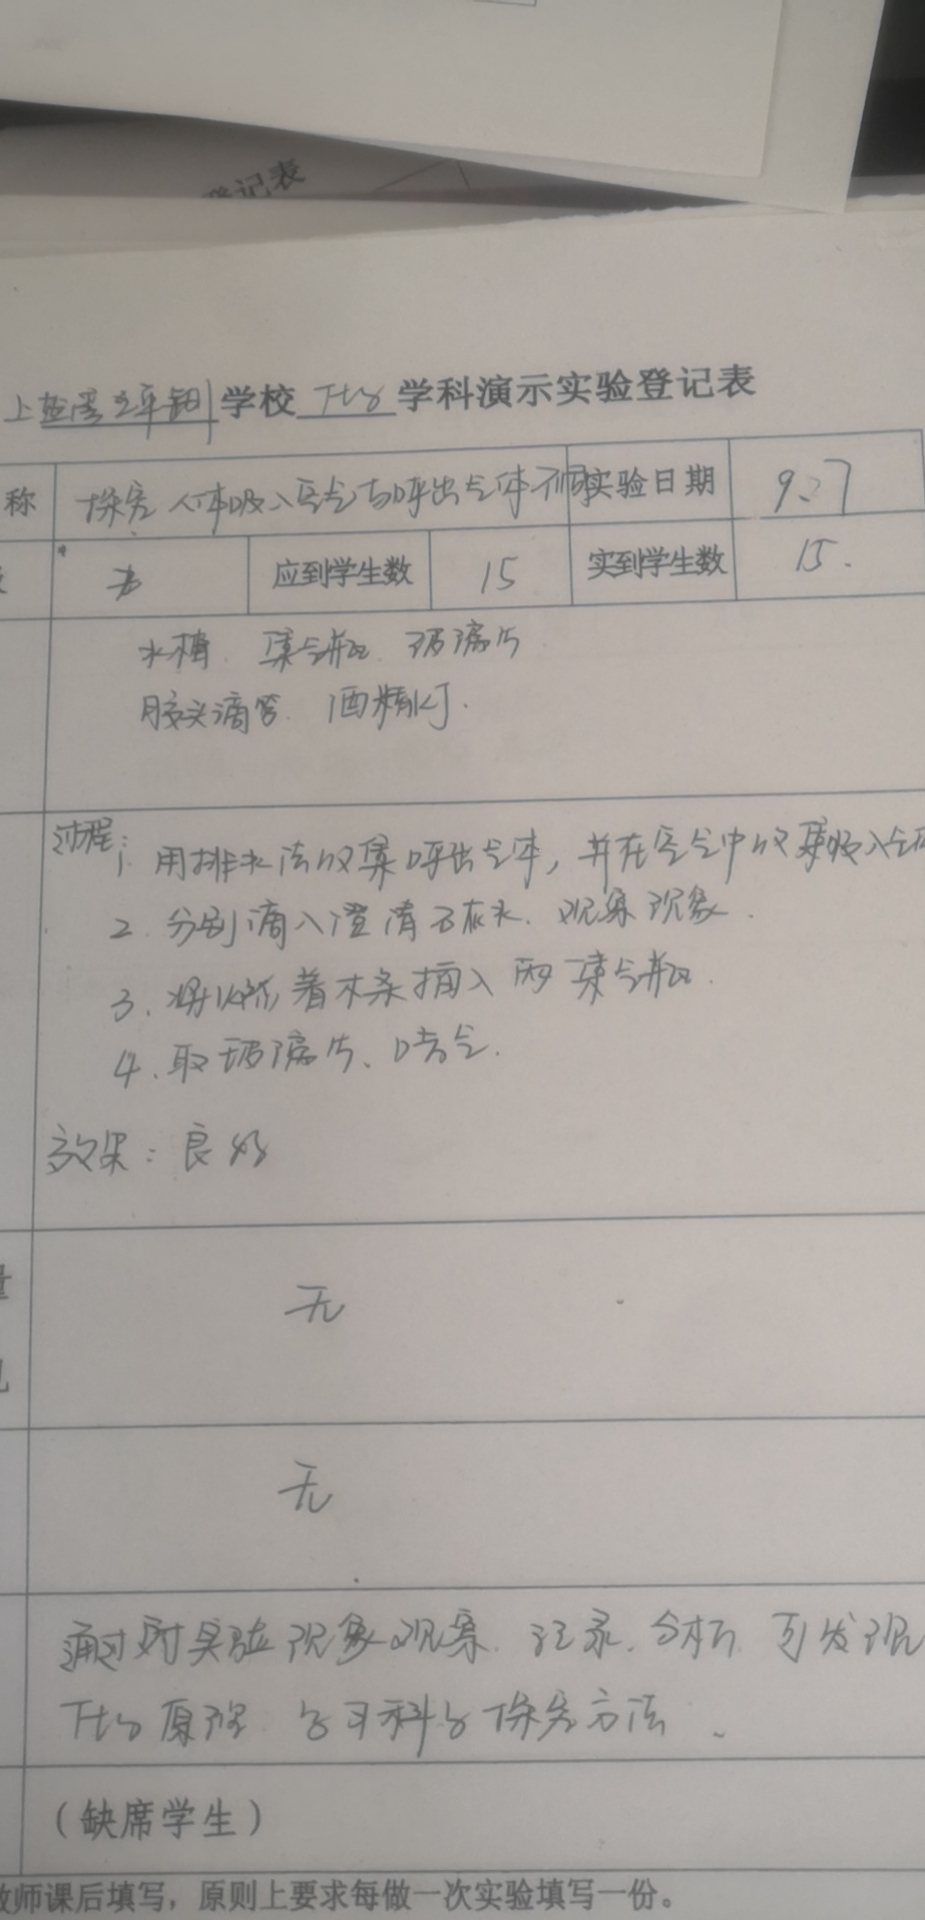 登记表
学校 化学 学科演示实验登记表
称 探究人体吸入空气与呼出气体不同 实验日期 9.27
应到学生数 15 实到学生数 15.
水槽. 集气瓶. 玻璃片
胶头滴管. 酒精灯.
过程:
1. 用排水法收集呼出气体, 并在空气中收集吸入气体
2. 分别滴入澄清石灰水. 观察现象.
3. 将燃着木条插入两集气瓶.
4. 取玻璃片、哈气.
效果: 良好
量
无
无
通过对实验现象观察. 记录. 分析. 可发现
化学原理 学习科学探究方法.
(缺席学生)
教师课后填写，原则上要求每做一次实验填写一份。